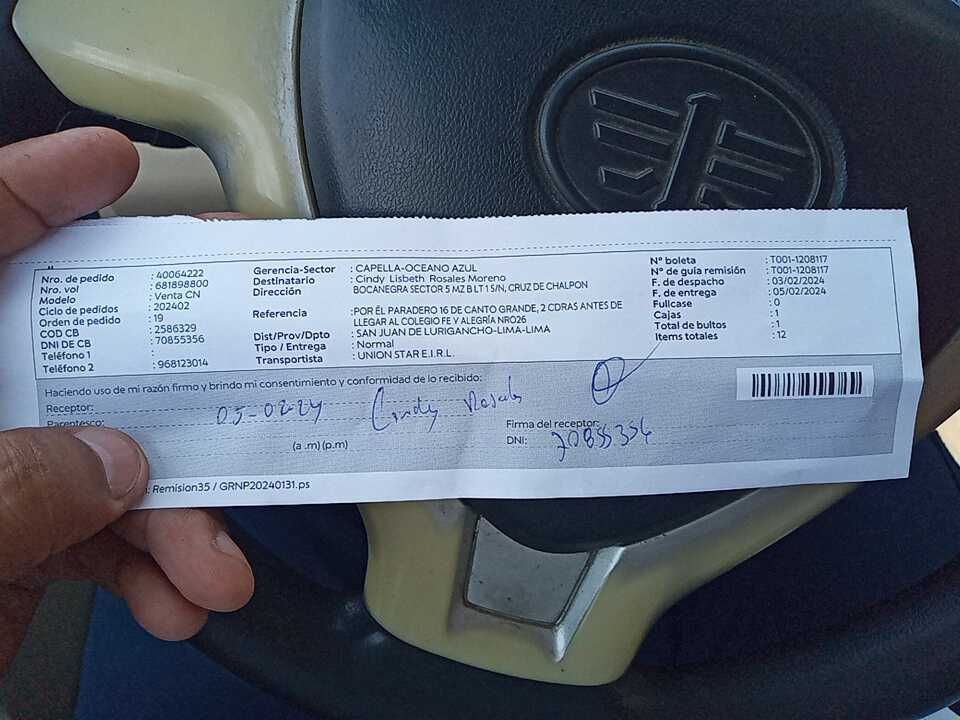 Nro. de pedido : 40064222
Nro. vol : 681898800
Modelo : Venta CN
Ciclo de pedidos : 202402
Orden de pedido : 19
COD CB : 2586329
DNI DE CB : 70855356
Teléfono 1 :
Teléfono 2 : 968123014
Gerencia-Sector : CAPELLA-OCEANO AZUL
Destinatario : Cindy Lisbeth Rosales Moreno
Dirección BOCANEGRA SECTOR 5 MZ B LT 1 S/N, CRUZ DE CHALPON
Referencia :POR ÉL PARADERO 16 DE CANTO GRANDE, 2 CDRAS ANTES DE
LLEGAR AL COLEGIO FE Y ALEGRÍA NRO26
Dist/Prov/Dpto : SAN JUAN DE LURIGANCHO-LIMA-LIMA
Tipo / Entrega : Normal
Transportista : UNION STAR E.I.R.L.
N° boleta : T001-1208117
N° de guía remisión : T001-1208117
F. de despacho : 03/02/2024
F. de entrega : 05/02/2024
Fullcase : 0
Cajas : 1
Total de bultos : 1
Items totales : 12
Haciendo uso de mi razón firmo y brindo mi consentimiento y conformidad de lo recibido:
Receptor: 05-02-24 Cindy Rosales
Parentesco:
(a .m) (p.m)
Firma del receptor:
DNI: 70855356
: Remision35 / GRNP20240131.ps